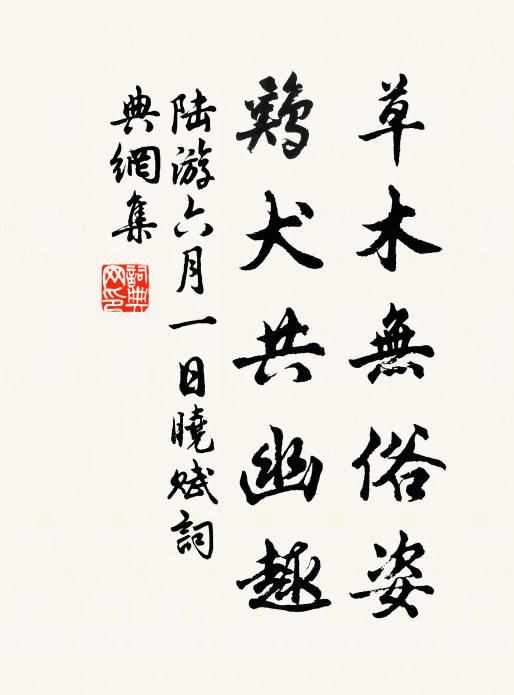 草木無俗姿
鷄犬共幽趣
陸游六月一日曉賦詞
典網集
詞典
网印